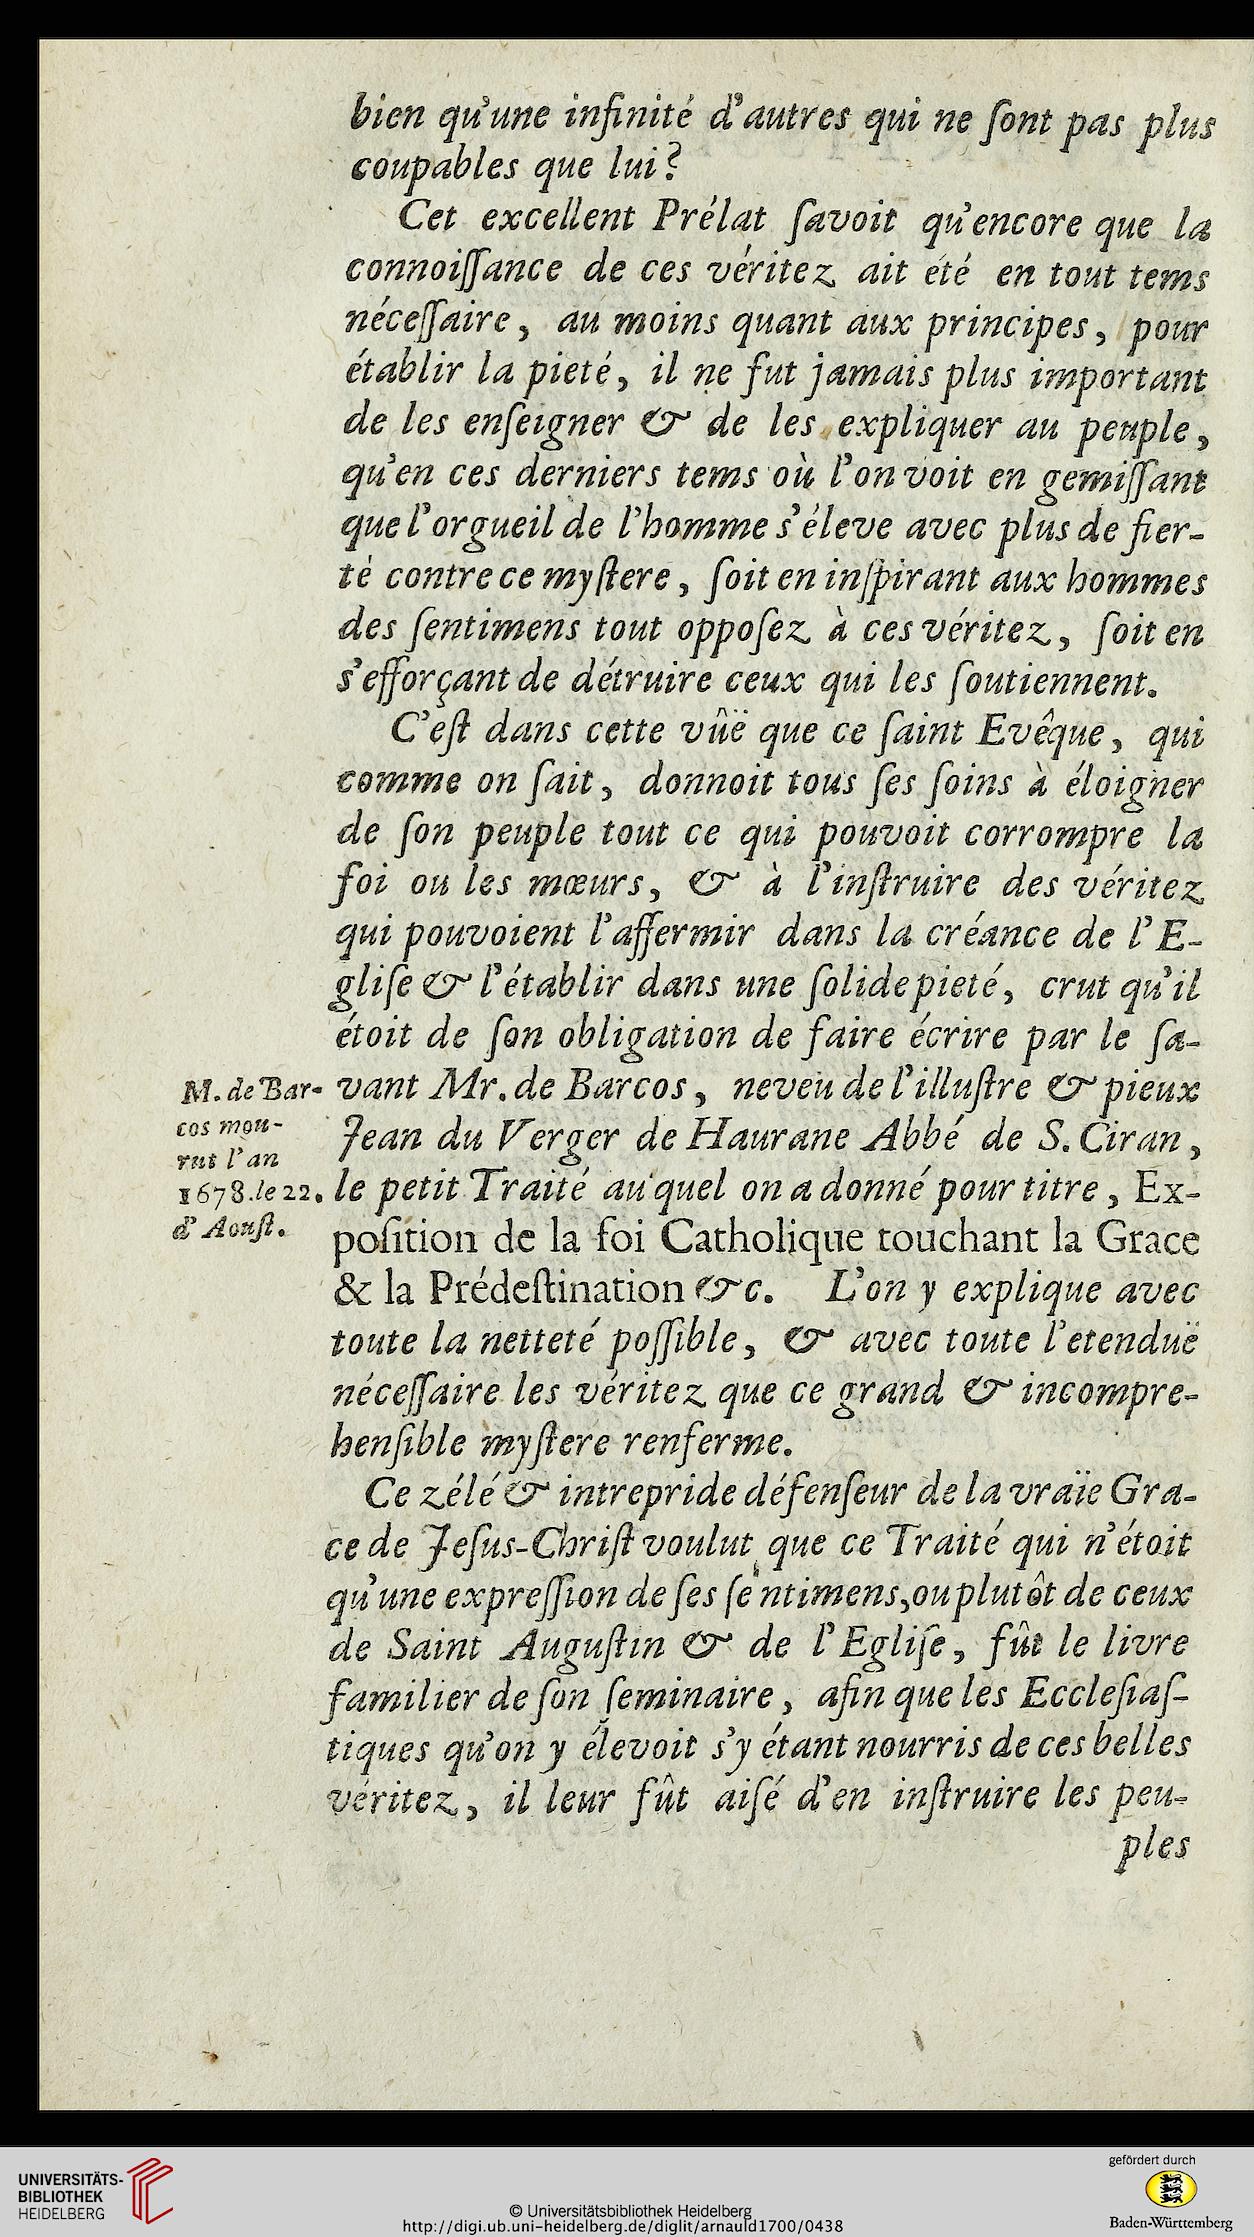 bien qu'une infinité d'autres qui ne ſont pas plus
coupables que lui?
Cet excellent Prélat ſavoit qu'encore que la
connoiſſance de ces véritez ait été en tout tems
néceſſaire, au moins quant aux principes, pour
établir la pieté, il ne fut jamais plus important
de les enſeigner & de les expliquer au peuple,
qu'en ces derniers tems où l'on voit en gemiſſant
que l'orgueil de l'homme s'éleve avec plus de fier-
té contre ce myſtere, ſoit en inſpirant aux hommes
des ſentimens tout oppoſez à ces véritez, ſoit en
s'efforçant de détruire ceux qui les ſoutiennent.
C'eſt dans cette vûë que ce ſaint Evêque, qui
comme on ſait, donnoit tous ſes ſoins à éloigner
de ſon peuple tout ce qui pouvoit corrompre la
foi ou les mœurs, & à l'inſtruire des véritez
qui pouvoient l'affermir dans la créance de l'E-
gliſe & l'établir dans une ſolide pieté, crut qu'il
étoit de ſon obligation de faire écrire par le ſa-
vant Mr. de Barcos, neveu de l'illuſtre & pieux
Jean du Verger de Haurane Abbé de S. Ciran,
le petit Traité auquel on a donné pour titre, Ex-
poſition de la foi Catholique touchant la Grace
& la Prédeſtination &c. L'on y explique avec
toute la netteté poſſible, & avec toute l'etenduë
néceſſaire les véritez que ce grand & incompre-
henſible myſtere renferme.
Ce zélé & intrepride défenſeur de la vraïe Gra-
ce de Jeſus-Chriſt voulut que ce Traité qui n'étoit
qu'une expreſſion de ſes ſentimens, ou plutôt de ceux
de Saint Auguſtin & de l'Egliſe, fût le livre
familier de ſon ſeminaire, afin que les Eccleſiaſ-
tiques qu'on y élevoit s'y étant nourris de ces belles
véritez, il leur fût aiſé d'en inſtruire les peu-
ples
M. de Bar-
cos mou-
rut l'an
1678. le 22.
d'Aouſt.
UNIVERSITÄTS-
BIBLIOTHEK
HEIDELBERG
© Universitätsbibliothek Heidelberg
http://digi.ub.uni-heidelberg.de/diglit/arnauld1700/0438
gefördert durch
Baden-Württemberg